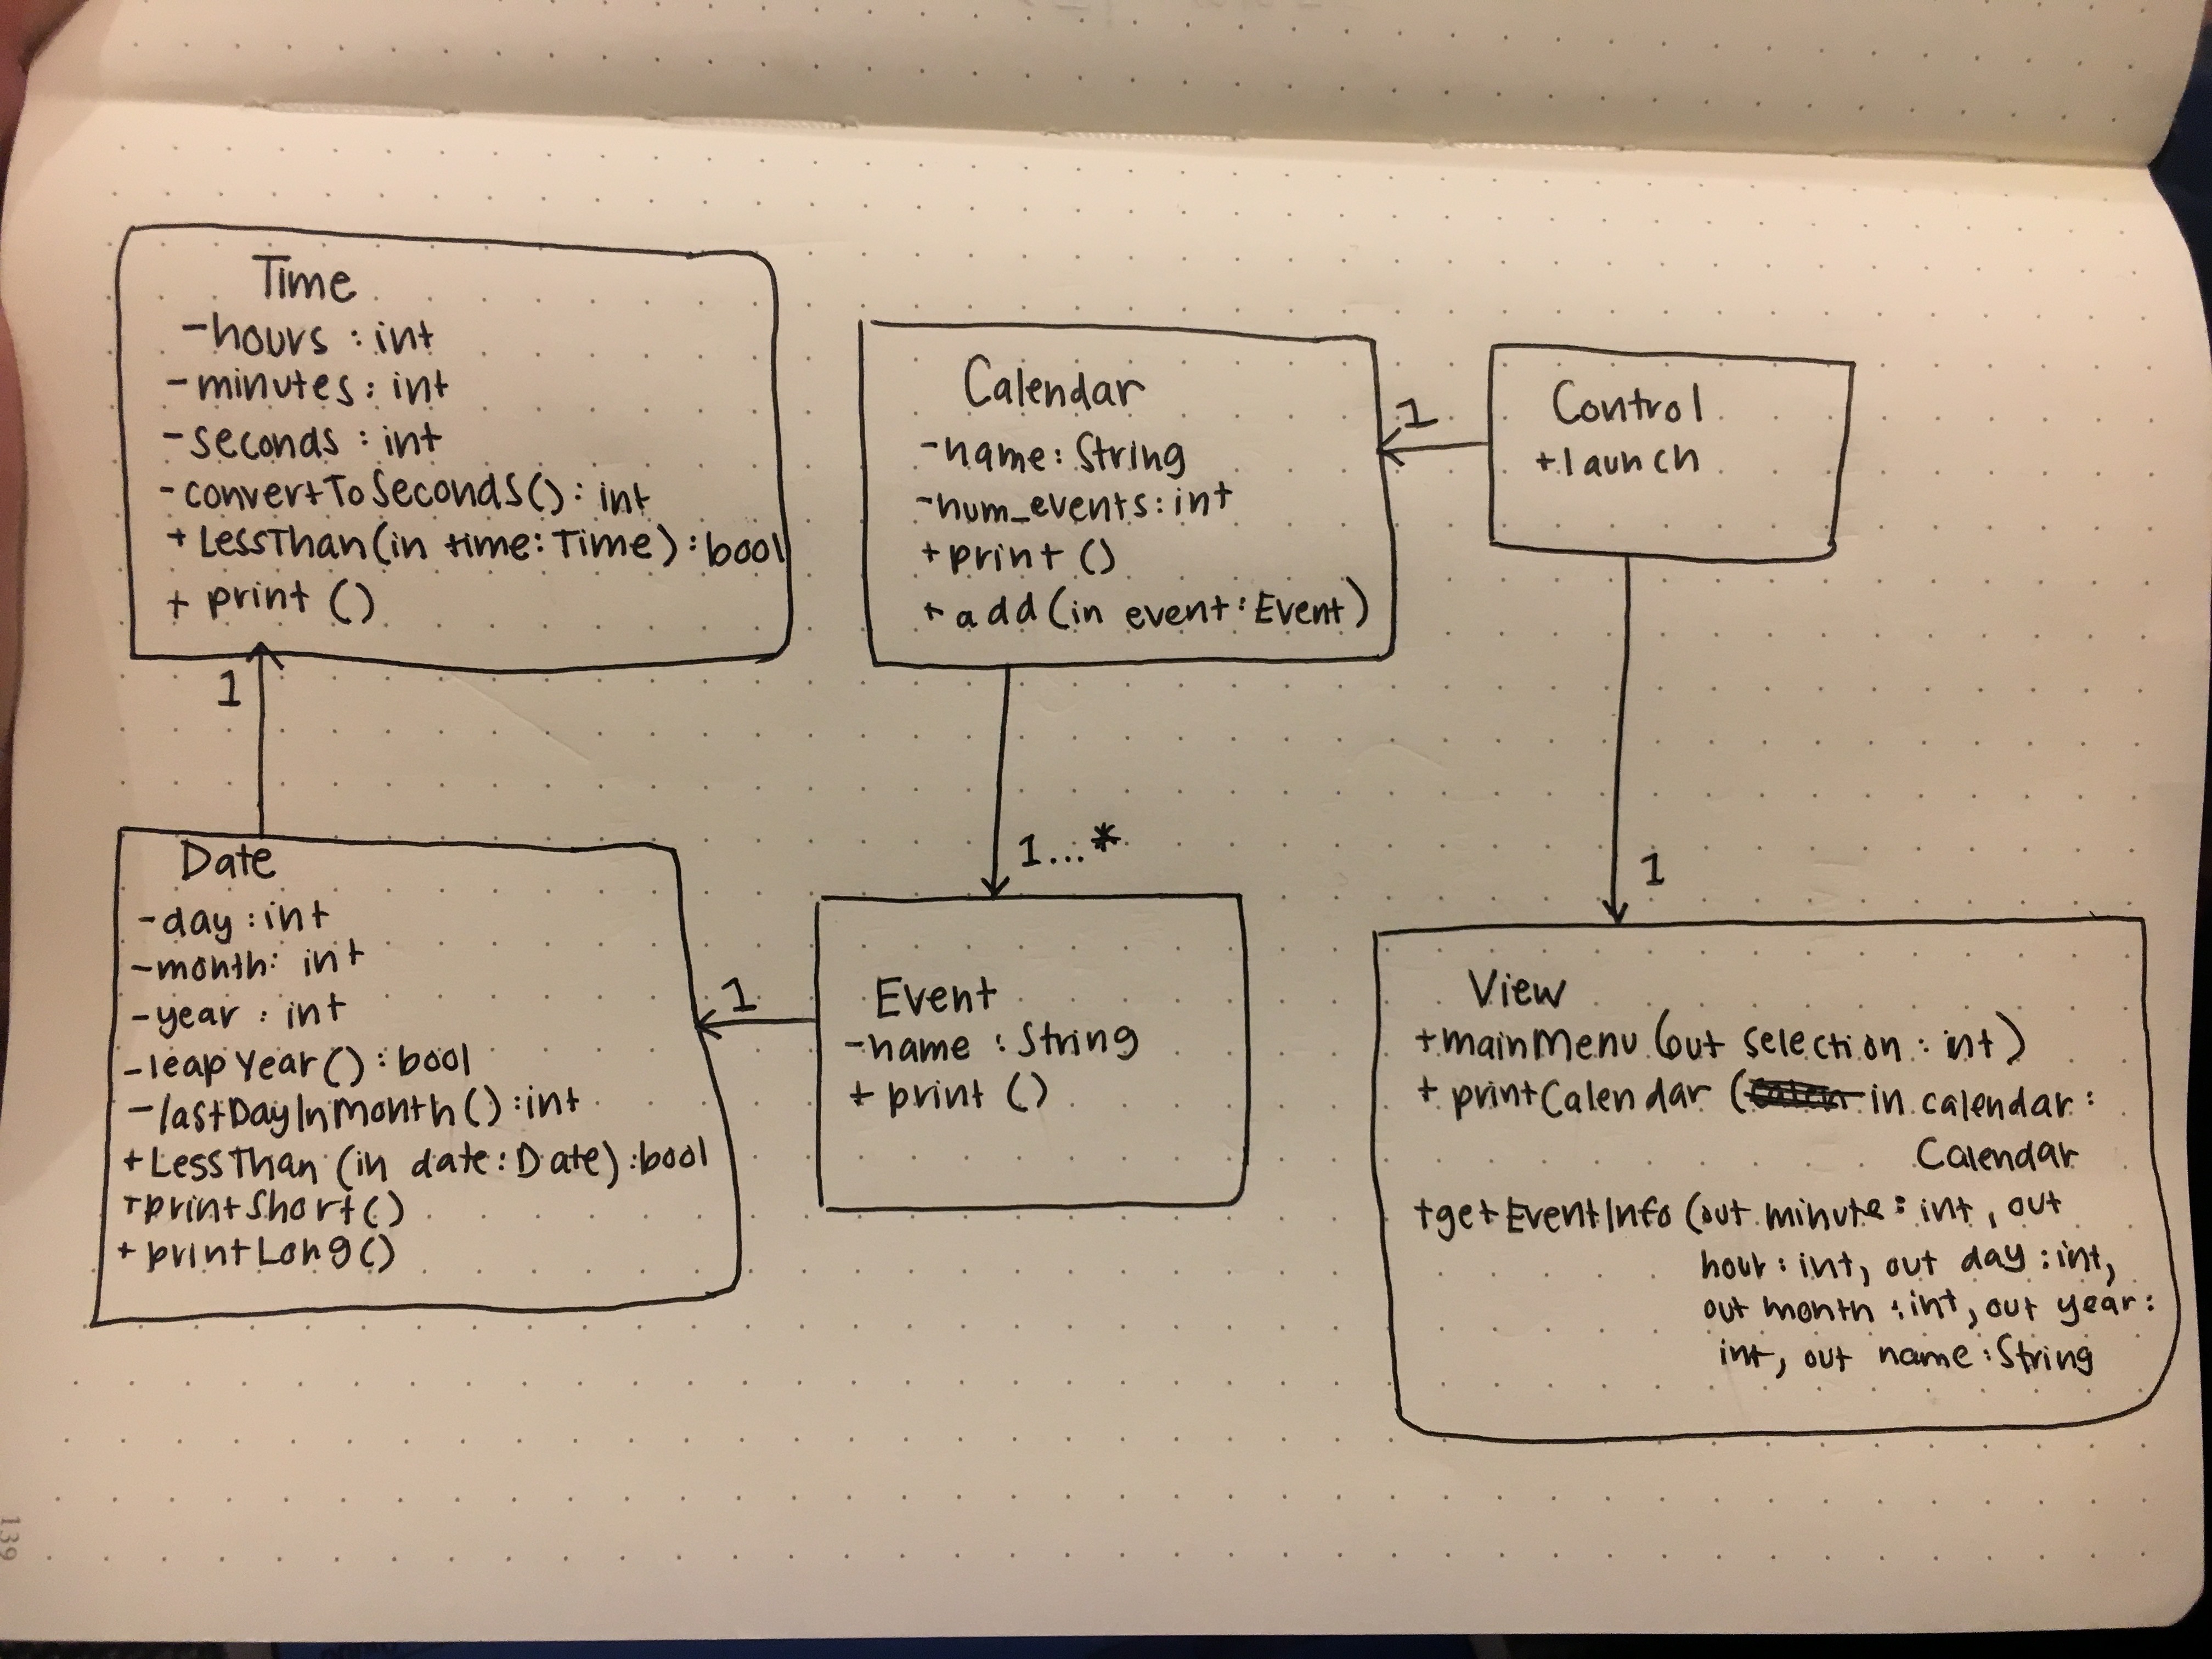 Time
-hours : int
-minutes : int
-seconds : int
-convertToSeconds() : int
+ LessThan(in time: Time) : bool
+ print ()
1
Calendar
-name: String
-num_events: int
+print ()
+add (in event: Event)
1
Control
+launch
1...*
1
Date
-day : int
-month: int
-year : int
-leapYear() : bool
-lastDayInMonth() : int
+LessThan (in date: Date) : bool
+printShort()
+ printLong()
1
Event
-name : String
+ print ()
View
+mainMenu (out selection : int)
+ printCalendar ( in calendar :
Calendar
+getEventInfo (out minute : int, out
hour : int, out day : int,
out month : int, out year :
int, out name : String
139